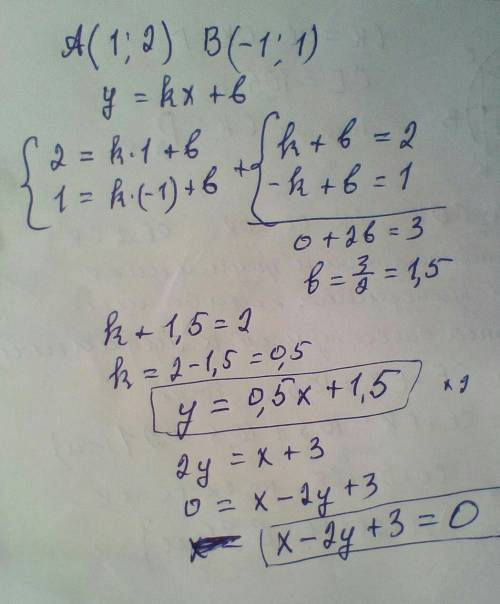 A(1;2) B(-1;1)
y = kx + в
{ 2 = k·1 + в
1 = k·(-1) + в
+ { k + в = 2
-k + в = 1
0 + 2в = 3
в = 3/2 = 1,5
k + 1,5 = 2
k = 2 - 1,5 = 0,5
y = 0,5x + 1,5
2y = x + 3
0 = x - 2y + 3
x - 2y + 3 = 0